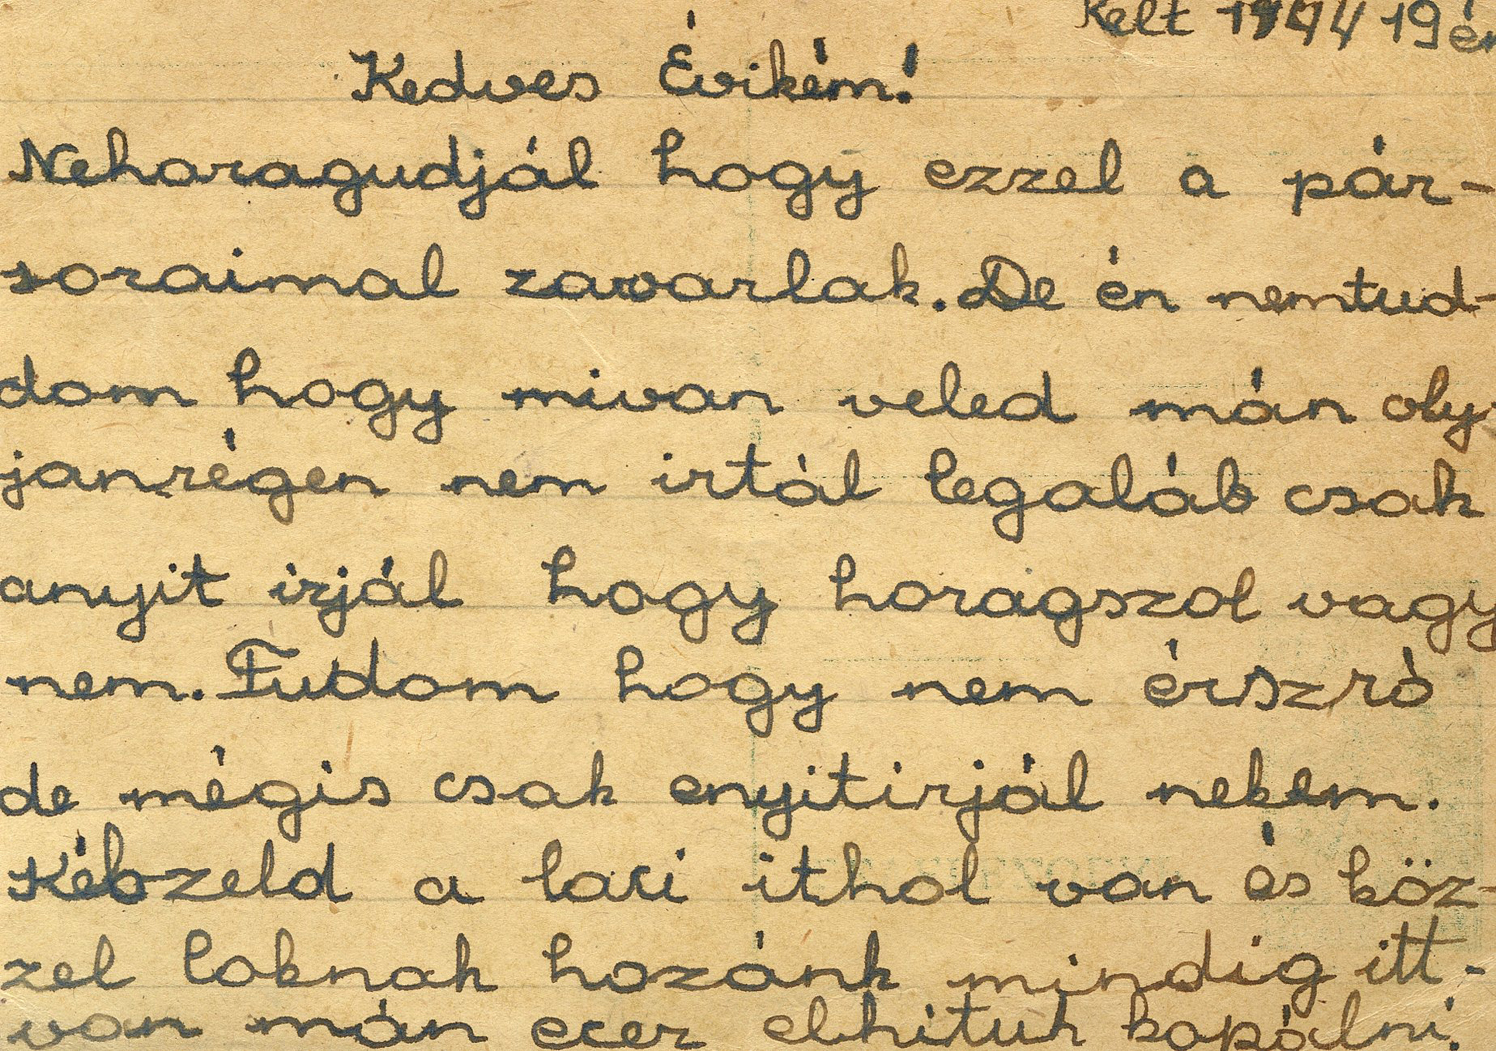 Kelt 1944 19én
Kedves Évikém!
Neharagudjál hogy ezzel a pár-
soraimal zavarlak. De én nemtud-
dom hogy mivan veled mán oly-
janrégen nem irtál legaláb csak
anyit irjál hogy haragszol vagy
nem. Tudom hogy nem érszró
de mégis csak enyitirjál nekem.
Kébzeld a laci ithol van és köz-
zel laknak hozánk mindig itt-
van mán ecer elhituk kapálni.